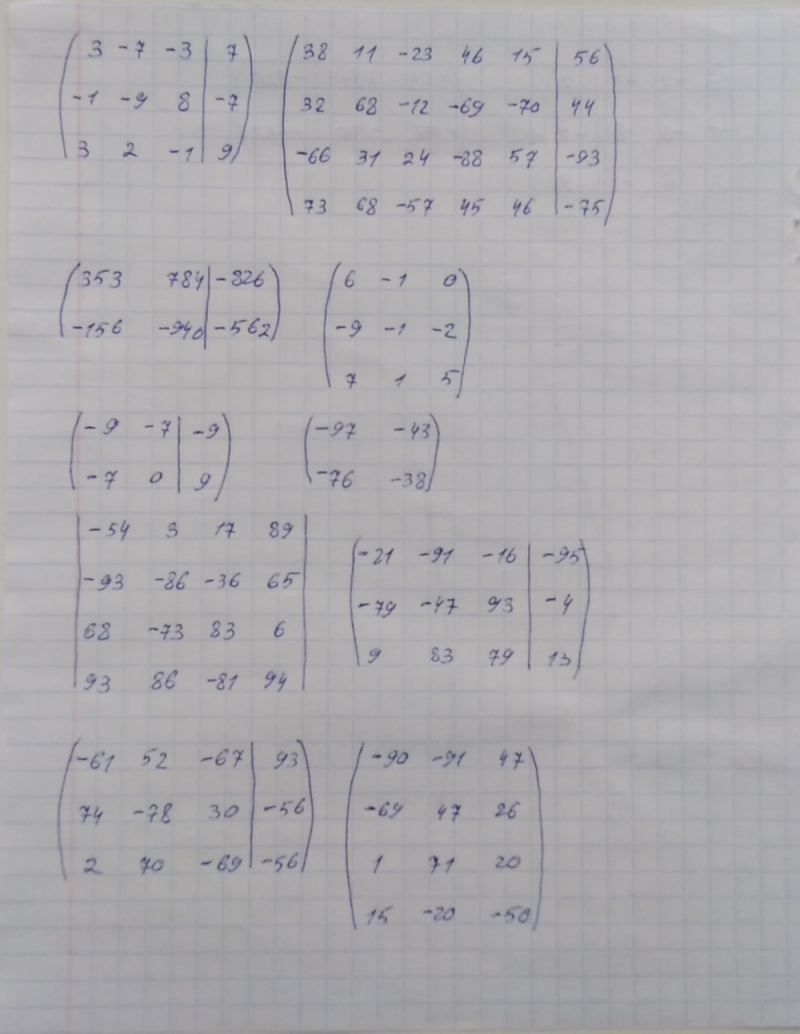 3 -7 -3 | 7
-1 -9 8 | -7
3 2 -1 | 9
38 11 -23 46 15 | 56
32 68 -12 -69 -70 | 44
-66 31 24 -88 57 | -93
73 68 -57 45 46 | -75
353 784 | -826
-156 -940 | -562
6 -1 0
-9 -1 -2
7 1 5
-9 -7 | -9
-7 0 | 9
-97 -43
-76 -38
-54 3 17 89
-93 -86 -36 65
68 -73 83 6
93 86 -81 94
-21 -91 -16 | -95
-79 -47 93 | -4
9 83 79 | 13
-61 52 -67 | 93
74 -78 30 | -56
2 70 -69 | -56
-90 -91 47
-64 47 26
1 71 20
15 -20 -50